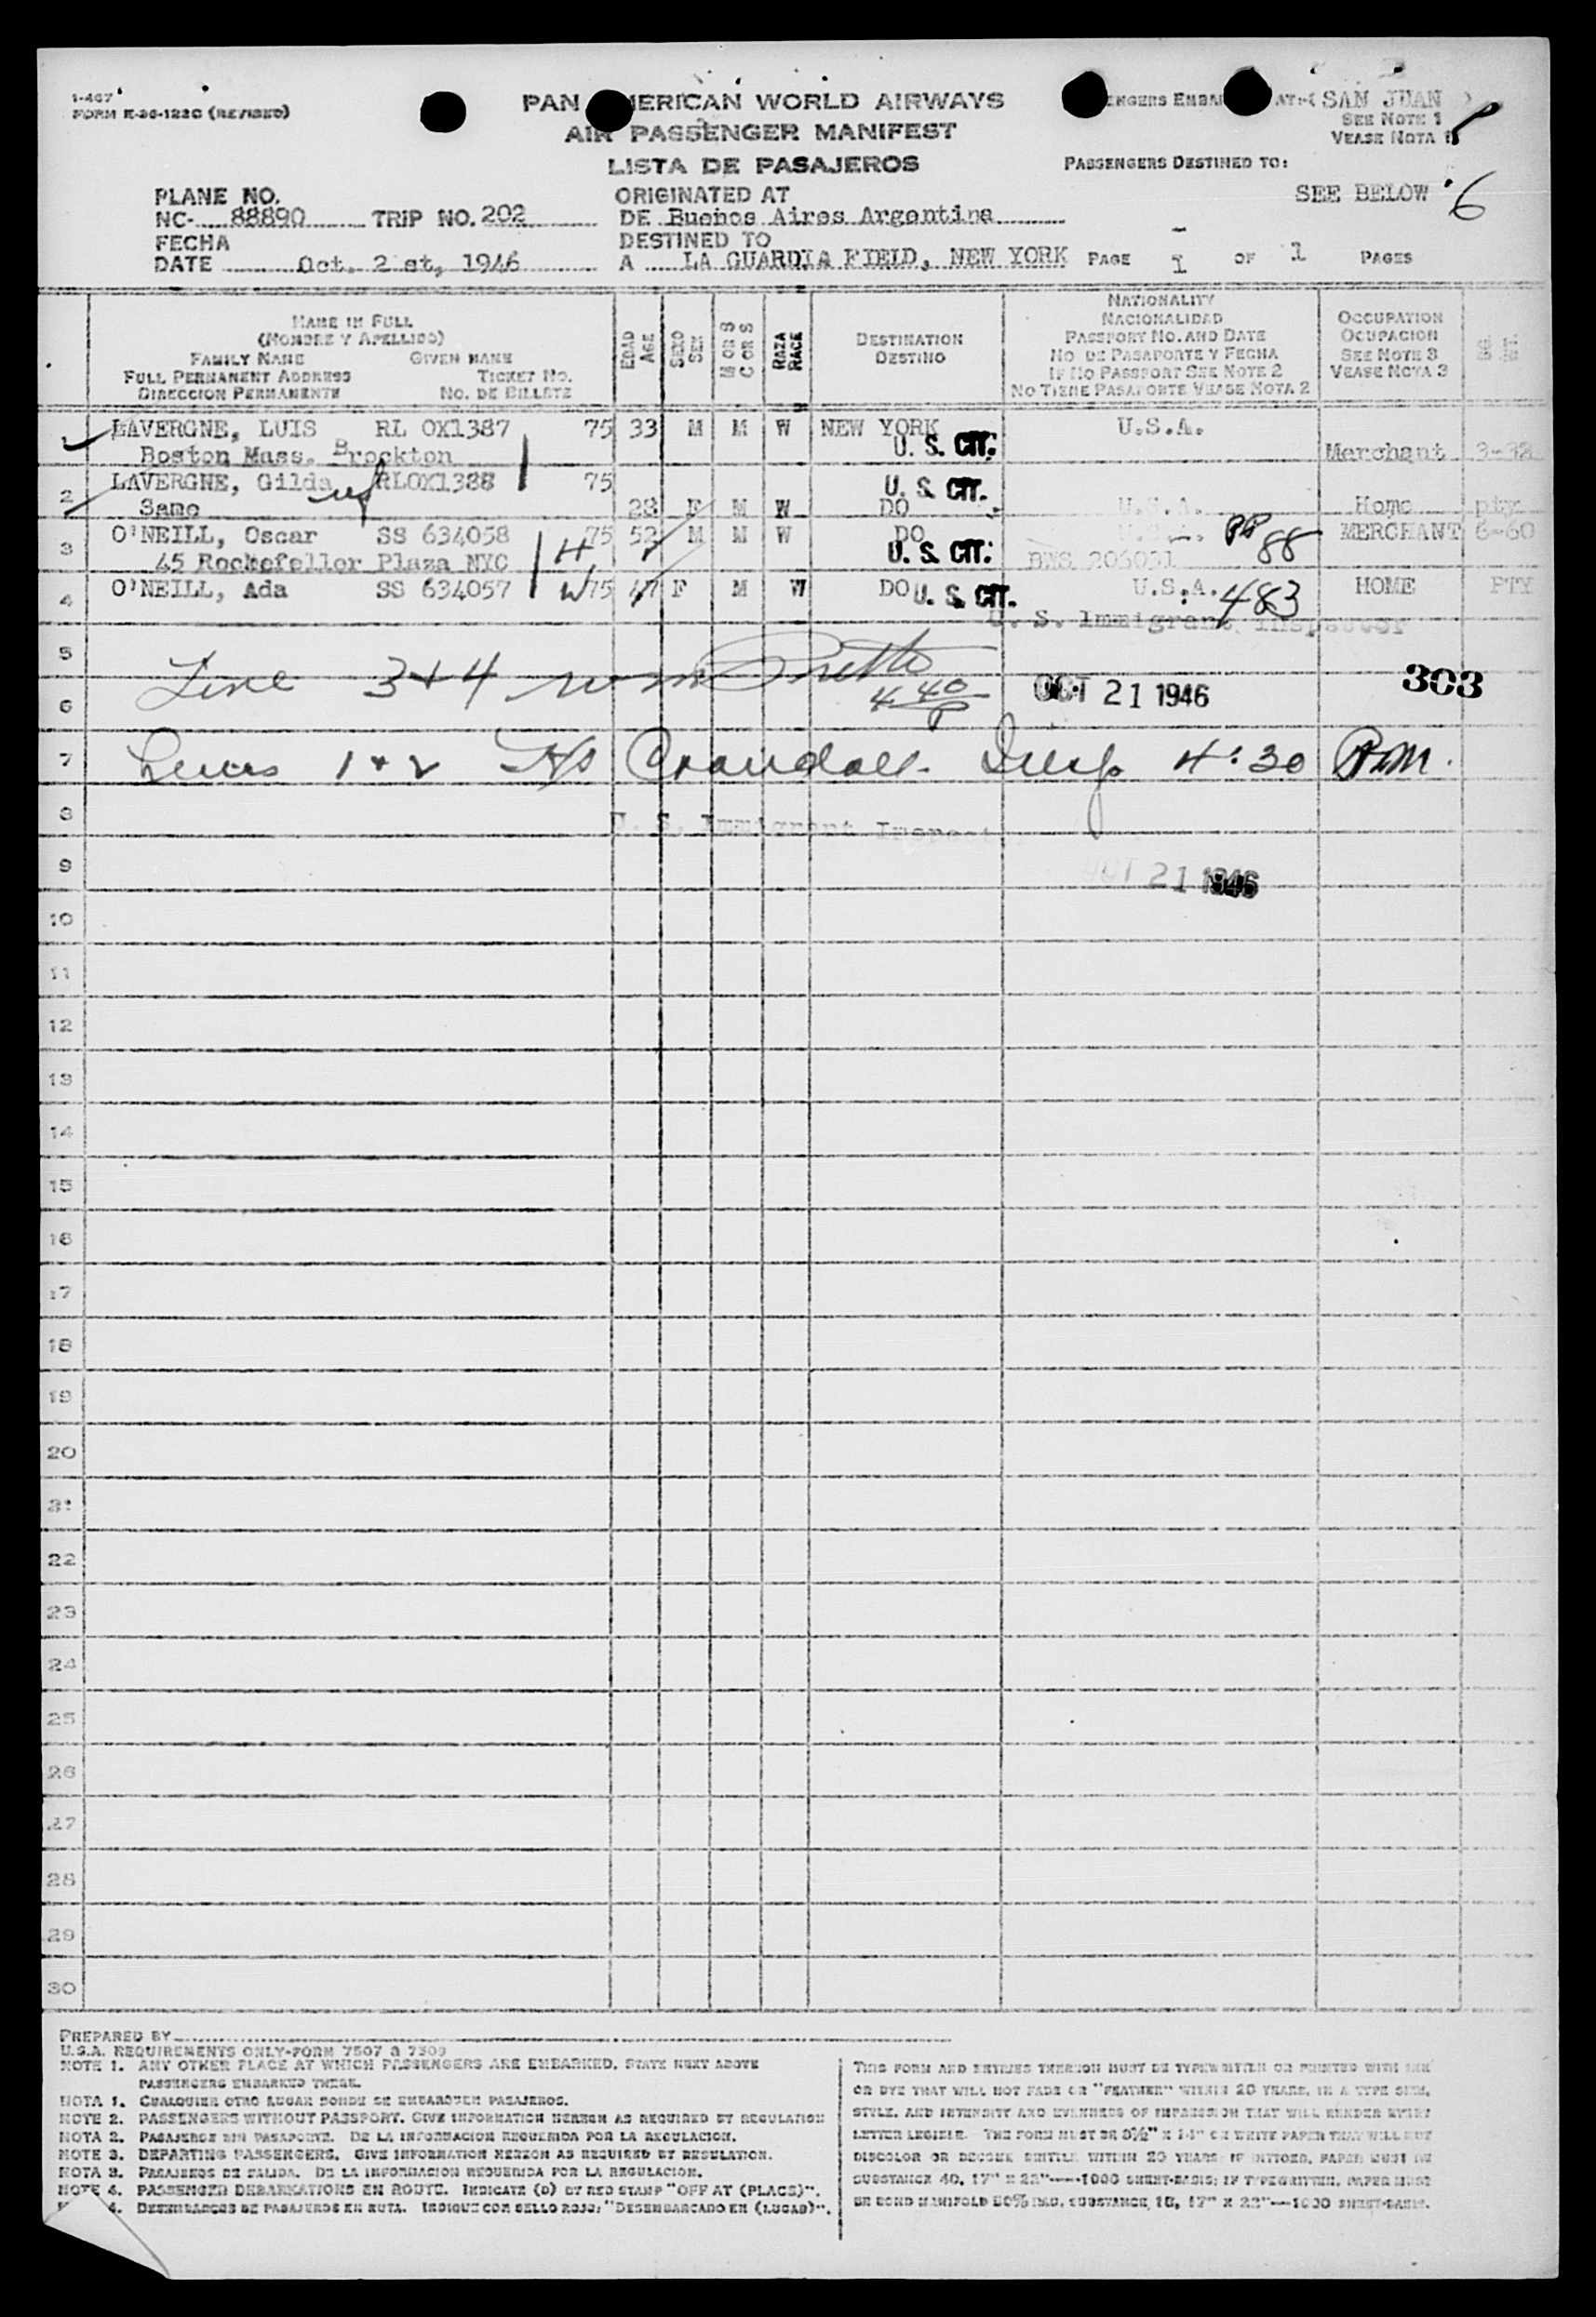 1-467
FORM E-36-122C (REVISED)
PAN AMERICAN WORLD AIRWAYS
AIR PASSENGER MANIFEST
LISTA DE PASAJEROS
SAN JUAN
SEE NOTE 1
VEASE NOTA 1
PASSENGERS DESTINED TO:
SEE BELOW 6
PLANE NO.
NC- 88890 TRIP NO. 202
FECHA
DATE Oct. 2 st, 1946
ORIGINATED AT
DE Buenos Aires Argentina
DESTINED TO
A LA GUARDIA FIELD, NEW YORK PAGE 1 OF 1 PAGES
NAME IN FULL
(NOMBRE Y APELLIDO)
FAMILY NAME GIVEN NAME
FULL PERMANENT ADDRESS TICKET NO.
DIRECCION PERMANENTE NO. DE BILLETE
EDAD AGE
SEXO SEX
M OR S
C OR S
RAZA RACE
DESTINATION
DESTINO
NATIONALITY
NACIONALIDAD
PASSPORT NO. AND DATE
NO DE PASAPORTE Y FECHA
IF NO PASSPORT SEE NOTE 2
NO TIENE PASAPORTE VEASE NOTA 2
OCCUPATION
OCUPACION
SEE NOTE 3
VEASE NOTA 3
LAVERGNE, LUIS RL OX1387 75 33 M M W NEW YORK U.S.A.
Boston Mass. Brockton U. S. CIT. Merchant 3-32
2 LAVERGNE, Gilda RLOX1388 75 U. S. CIT.
Same 28 F M W DO U.S.A. Home pty
3 O'NEILL, Oscar SS 634058 75 52 M M W DO PP 88 MERCHANT 6-60
45 Rockefeller Plaza NYC H U. S. CIT.
4 O'NEILL, Ada SS 634057 W 75 47 F M W DO U. S. CIT. U.S.A. 483 HOME PTY
U. S. Immigrant Inspector
5
Line 3+4
4 40 P
6 OCT 21 1946 303
7 Lines 1 + 2 Crandall Insp 4:30 P.M.
8 U. S. Immigrant Inspector
9 OCT 21 1946
10
11
12
13
14
15
16
17
18
19
20
21
22
23
24
25
26
27
28
29
30
PREPARED BY
U.S.A. REQUIREMENTS ONLY-FORM 7507 & 7509
NOTE 1. ANY OTHER PLACE AT WHICH PASSENGERS ARE EMBARKED, STATE NEXT ABOVE
PASSENGERS EMBARKED THERE.
NOTA 1. CUALQUIER OTRO LUGAR DONDE SE EMBARQUEN PASAJEROS.
NOTE 2. PASSENGERS WITHOUT PASSPORT. GIVE INFORMATION HEREON AS REQUIRED BY REGULATION
NOTA 2. PASAJEROS SIN PASAPORTE. DE LA INFORMACION REQUERIDA POR LA REGULACION.
NOTE 3. DEPARTING PASSENGERS. GIVE INFORMATION HEREON AS REQUIRED BY REGULATION.
NOTA 3. PASAJEROS DE SALIDA. DE LA INFORMACION REQUERIDA POR LA REGULACION.
NOTE 4. PASSENGER DEBARKATIONS EN ROUTE. INDICATE (D) BY RED STAMP "OFF AT (PLACE)".
4. DESEMBARCOS DE PASAJEROS EN RUTA. INDIQUE CON SELLO ROJO: "DESEMBARCADO EN (LUGAR)".
THIS FORM AND ENTRIES THEREON MUST BE TYPEWRITTEN OR PRINTED WITH INK
OR DYE THAT WILL NOT FADE OR "FEATHER" WITHIN 20 YEARS, IN A TYPE SIZE,
STYLE, AND INTENSITY AND EVENNESS OF IMPRESSION THAT WILL RENDER EVERY
LETTER LEGIBLE. THE FORM MUST BE 8½" X 14" ON WHITE PAPER THAT WILL NOT
DISCOLOR OR BECOME BRITTLE WITHIN 20 YEARS. IF DITTOED, PAPER MUST BE
SUBSTANCE 40, 17" X 22"—1000 SHEET-BASIS; IF TYPEWRITTEN, PAPER MUST
BE BOND MANIFOLD 50% RAG, SUBSTANCE 16, 17" X 22"—1000 SHEET-BASIS.